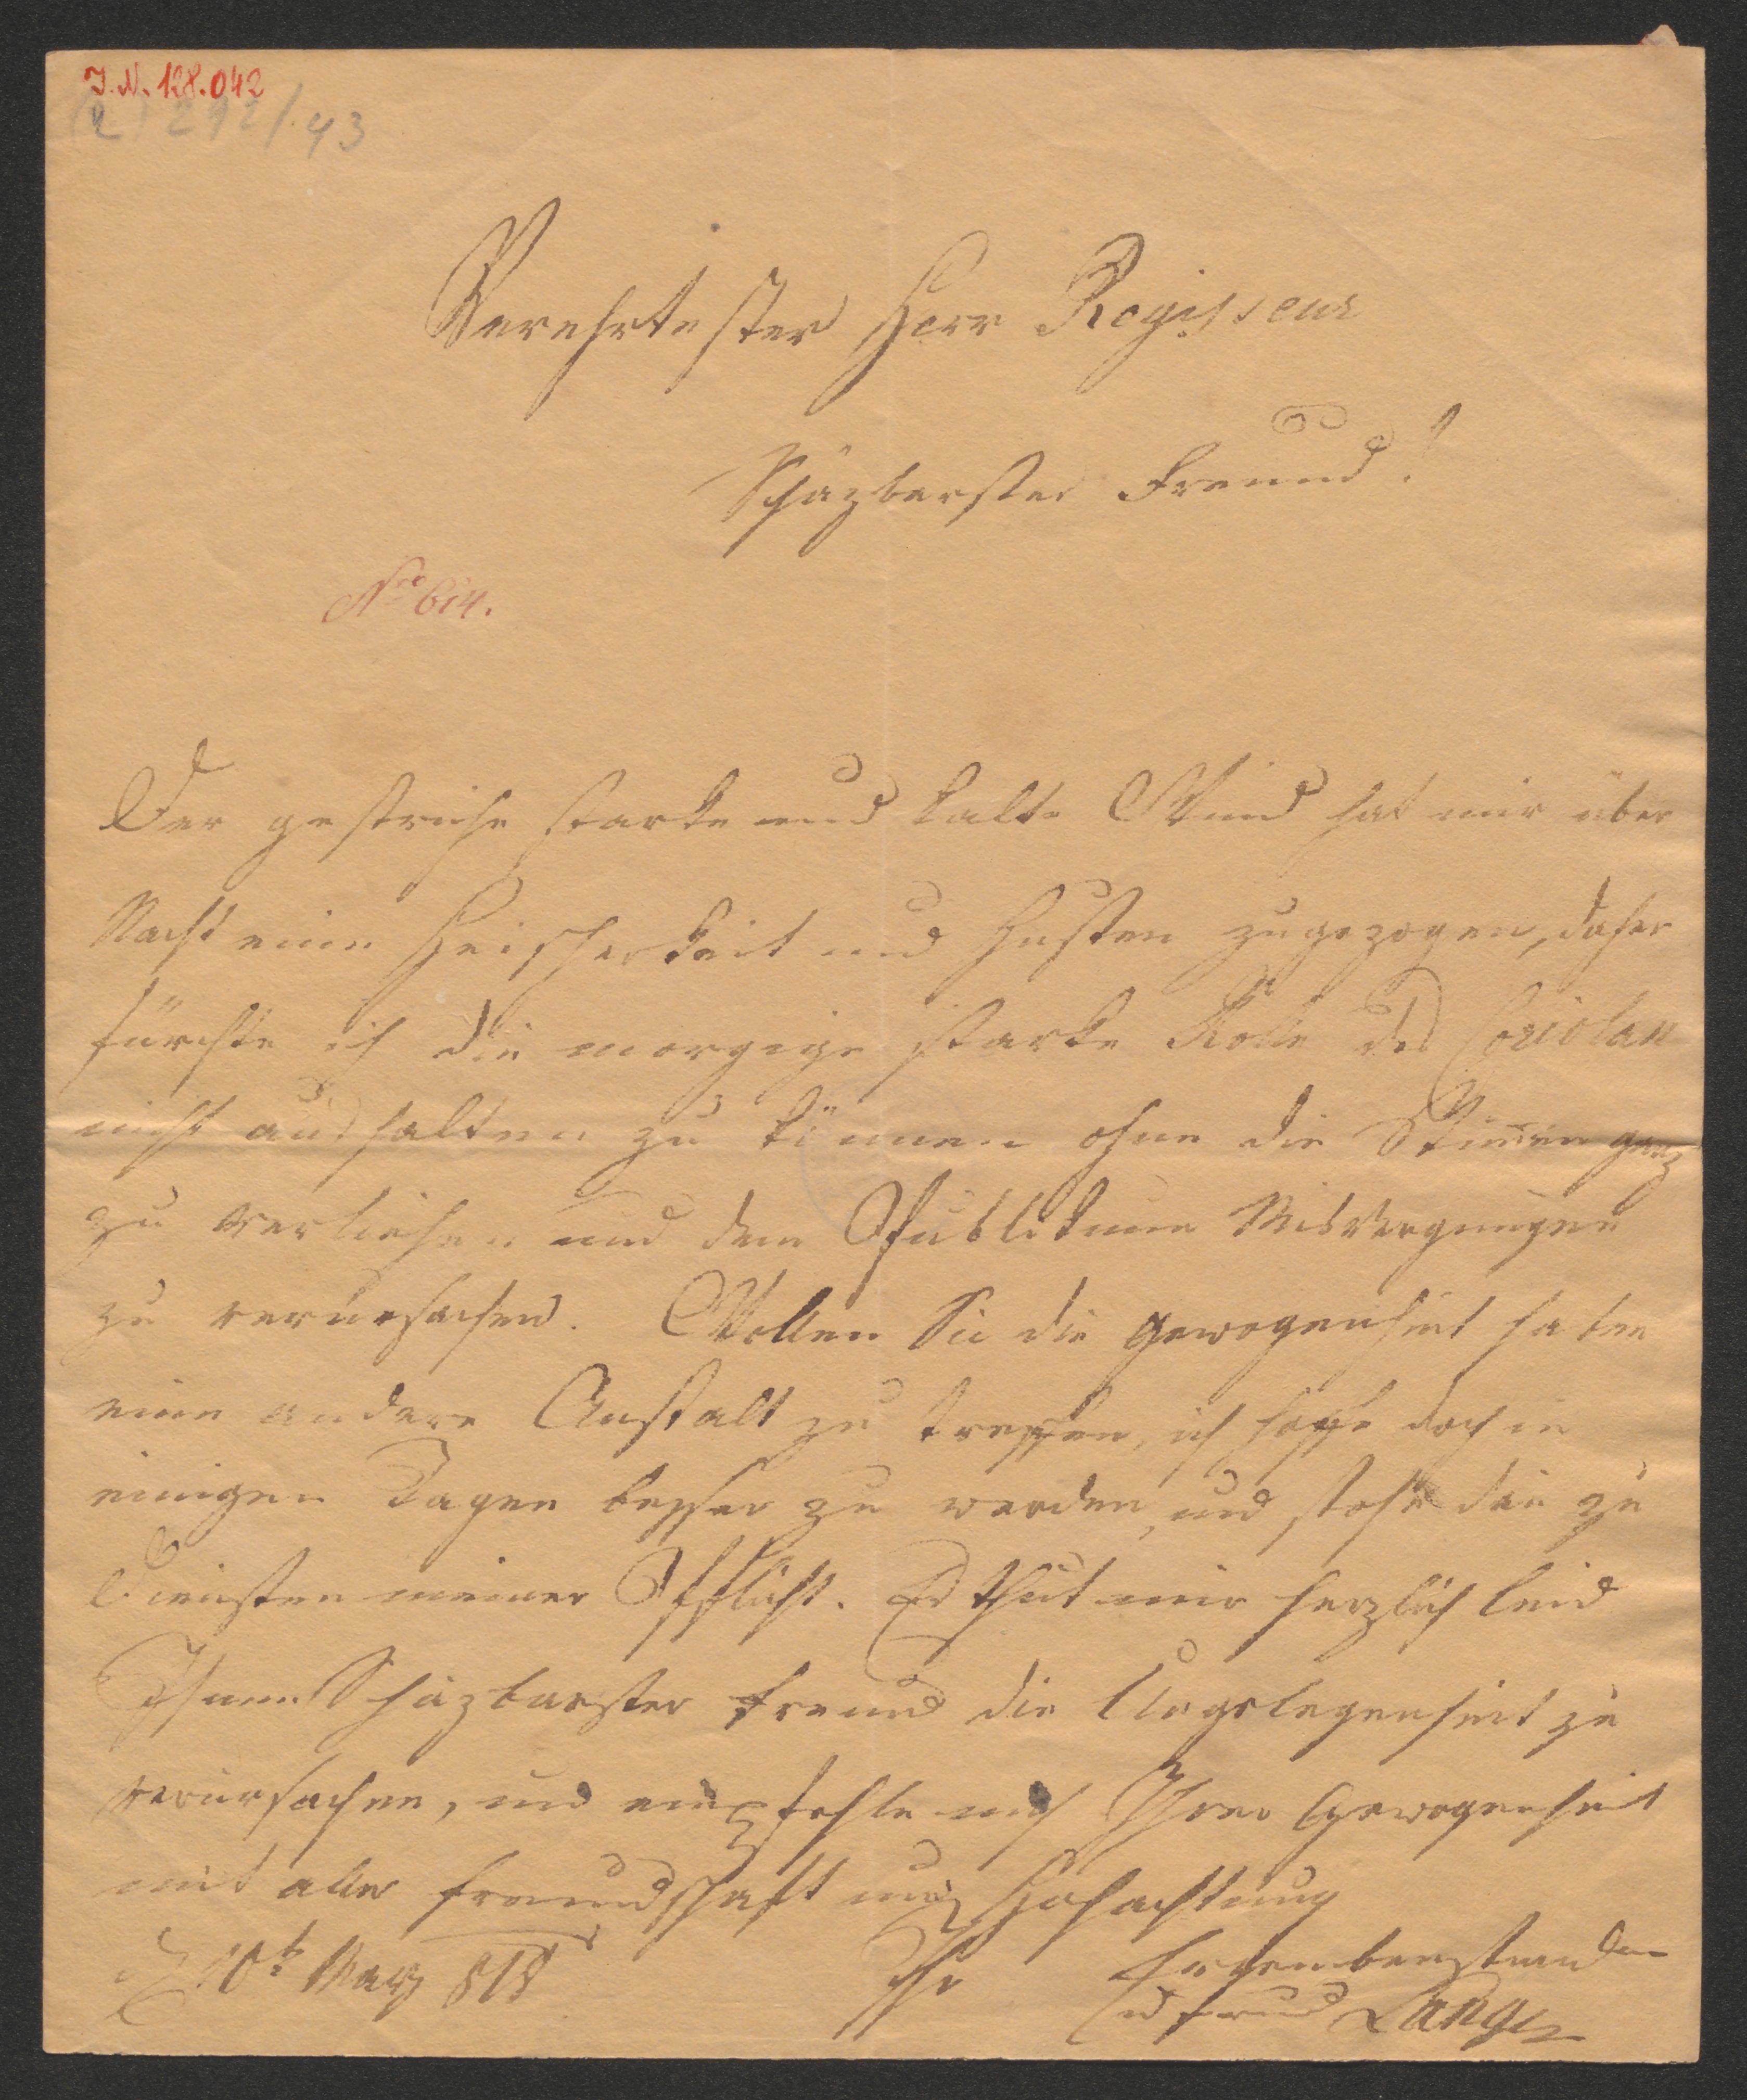 I.N. 128.042
(2) 292/.43
Verehrtester Herr Regisseur
Schäzbarster Freund!
Nro 614.
Der gestriche starke und kalte Wind hat mir über
Nacht eine Heischerkeit und Husten zugezogen, daher
fürchte ich die morgige starke Rolle des Coriolan
nicht aushalten zu können ohne die Stimm ganz
zu verliehren und dem Publikum Misvergnügen
zu verursachen. Wollen Sie die gewogenheit haben
eine andere Anstalt zu treffen, ich hoffe doch in
einigen Tagen besser zu werden, und stehe dan zu
Diensten meiner Pflicht. Es thut mir herzlich leid
Ihnen Schäzbarster Freund die Ungelegenheit zu
verursachen, und empfehle mich Ihrer Gewogenheit
mit aller Freundschaft und Hochachtung
d 10t März 818 Ihr
Freund Lange